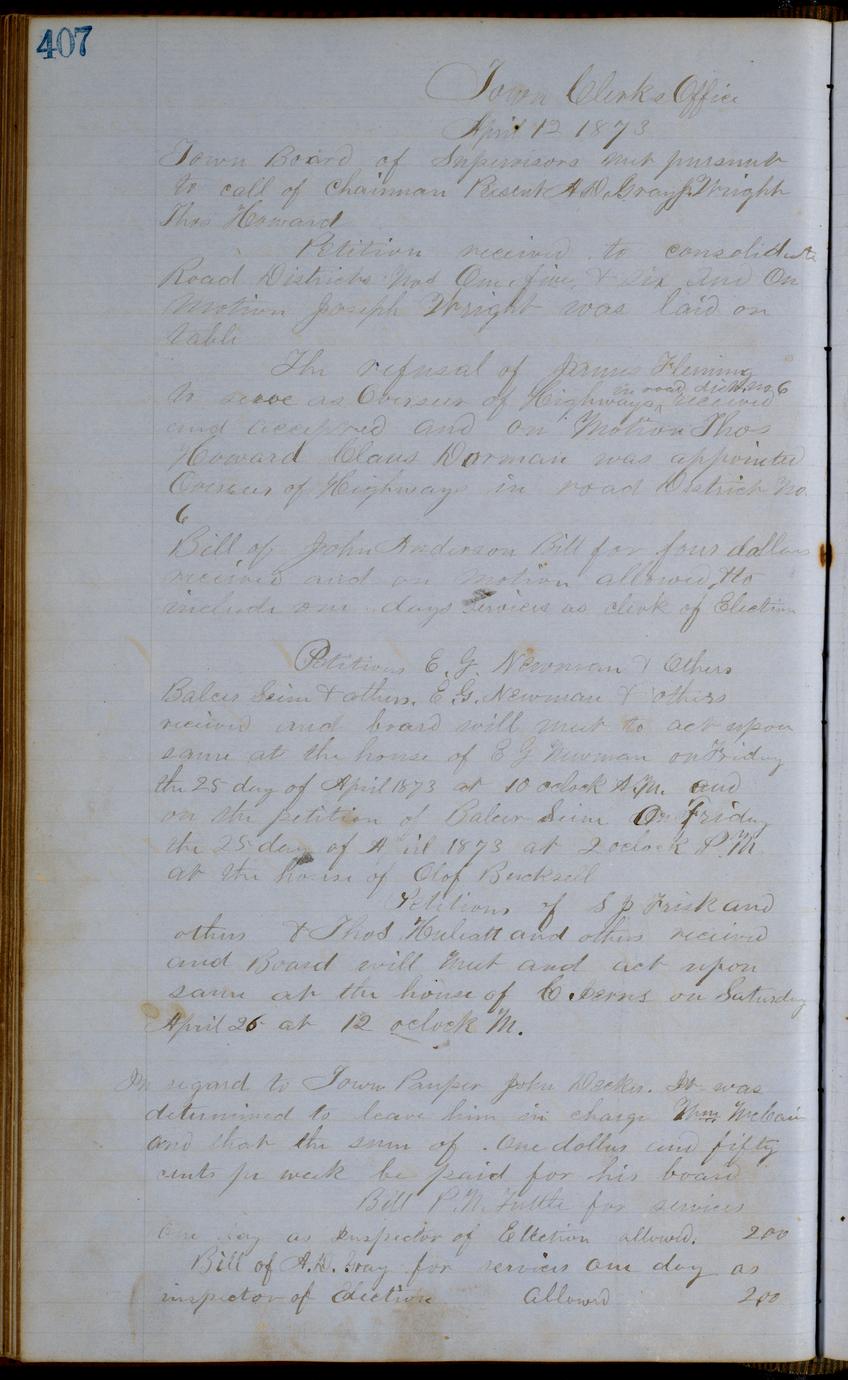 407
Town Clerks Office
April 12 1873
Town Board of Supervisors met pursuant
to call of Chairman Present A. D. Gray J. Wright
Thos Howard
Petition received to consolidate
Road Districts Nos One, five, & Six and On
Motion Joseph Wright was laid on
table
The refusal of James Fleming
in road dist. no. 6
to serve as Overseer of Highways, received
and accepted and on Motion Thos
Howard Claus Dorman was appointed
Overseer of Highways in road District No.
6
Bill of John Anderson Bill for four dollars
received and on motion allowed, to
include one days services as clerk of Election
Petitions E. G. Newman & Others
Balcer Seim & others. E. G. Newman & others
received and board will meet to act upon
same at the house of E G Newman on Friday
the 25 day of April 1873 at 10 oclock A.M. and
on the petition of Balcer Seim On Friday
the 25 day of A il 1873 at 2 oclock P.M.
at the house of Olof
Petitions of S P Frisk and
others & Thos and others received
and Board will Meet and act upon
same at the house of C. on Saturday
April 26 at 12 oclock M.
In regard to Town Pauper John Decker. It was
determined to leave him in charge Wm McCain
and that the sum of . One dollar and fifty
cents pr week be paid for his board
Bill P. N. Tuttle for services
One day as Inspector of Election allowed. 200
Bill of A. D. Gray for services one day as
inspector of Election Allowed 200